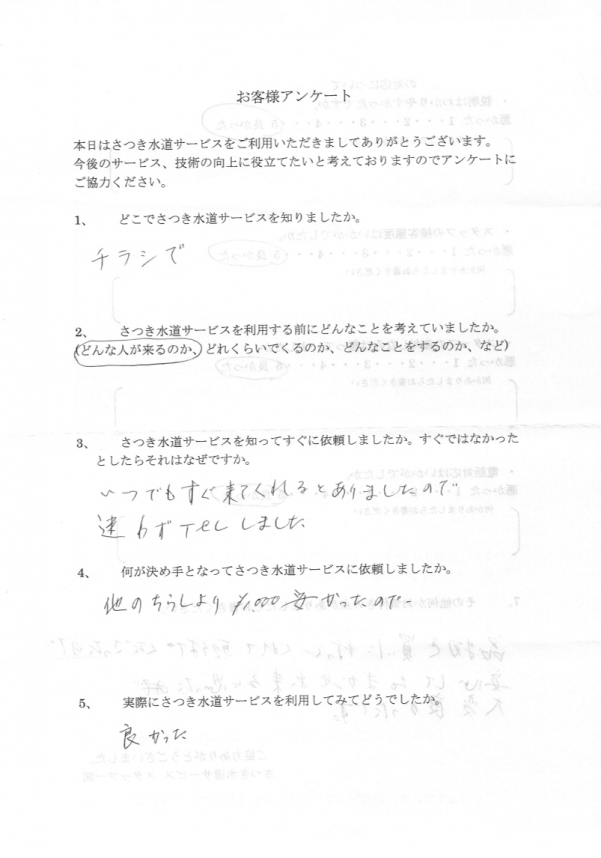 お客様アンケート
本日はさつき水道サービスをご利用いただきましてありがとうございます。
今後のサービス、技術の向上に役立てたいと考えておりますのでアンケートに
ご協力ください。
1、 どこでさつき水道サービスを知りましたか。
チラシで
2、 さつき水道サービスを利用する前にどんなことを考えていましたか。
(どんな人が来るのか、どれくらいでくるのか、どんなことをするのか、など)
3、 さつき水道サービスを知ってすぐに依頼しましたか。すぐではなかった
としたらそれはなぜですか。
いつでもすぐ来てくれるとありましたので
迷わずTELしました
4、 何が決め手となってさつき水道サービスに依頼しましたか。
他のちらしより ¥1,000 安かったので
5、 実際にさつき水道サービスを利用してみてどうでしたか。
良かった